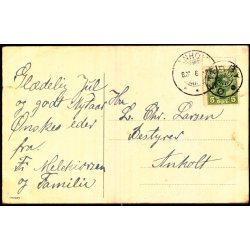 ANHOLT
Glædelig Jul
og godt Nytaar
Ønskes eder
fra.
Fr Melchiorsen
og Familie
Hr.
L. Chr. Larsen
Bestyrer
Anholt
5 5